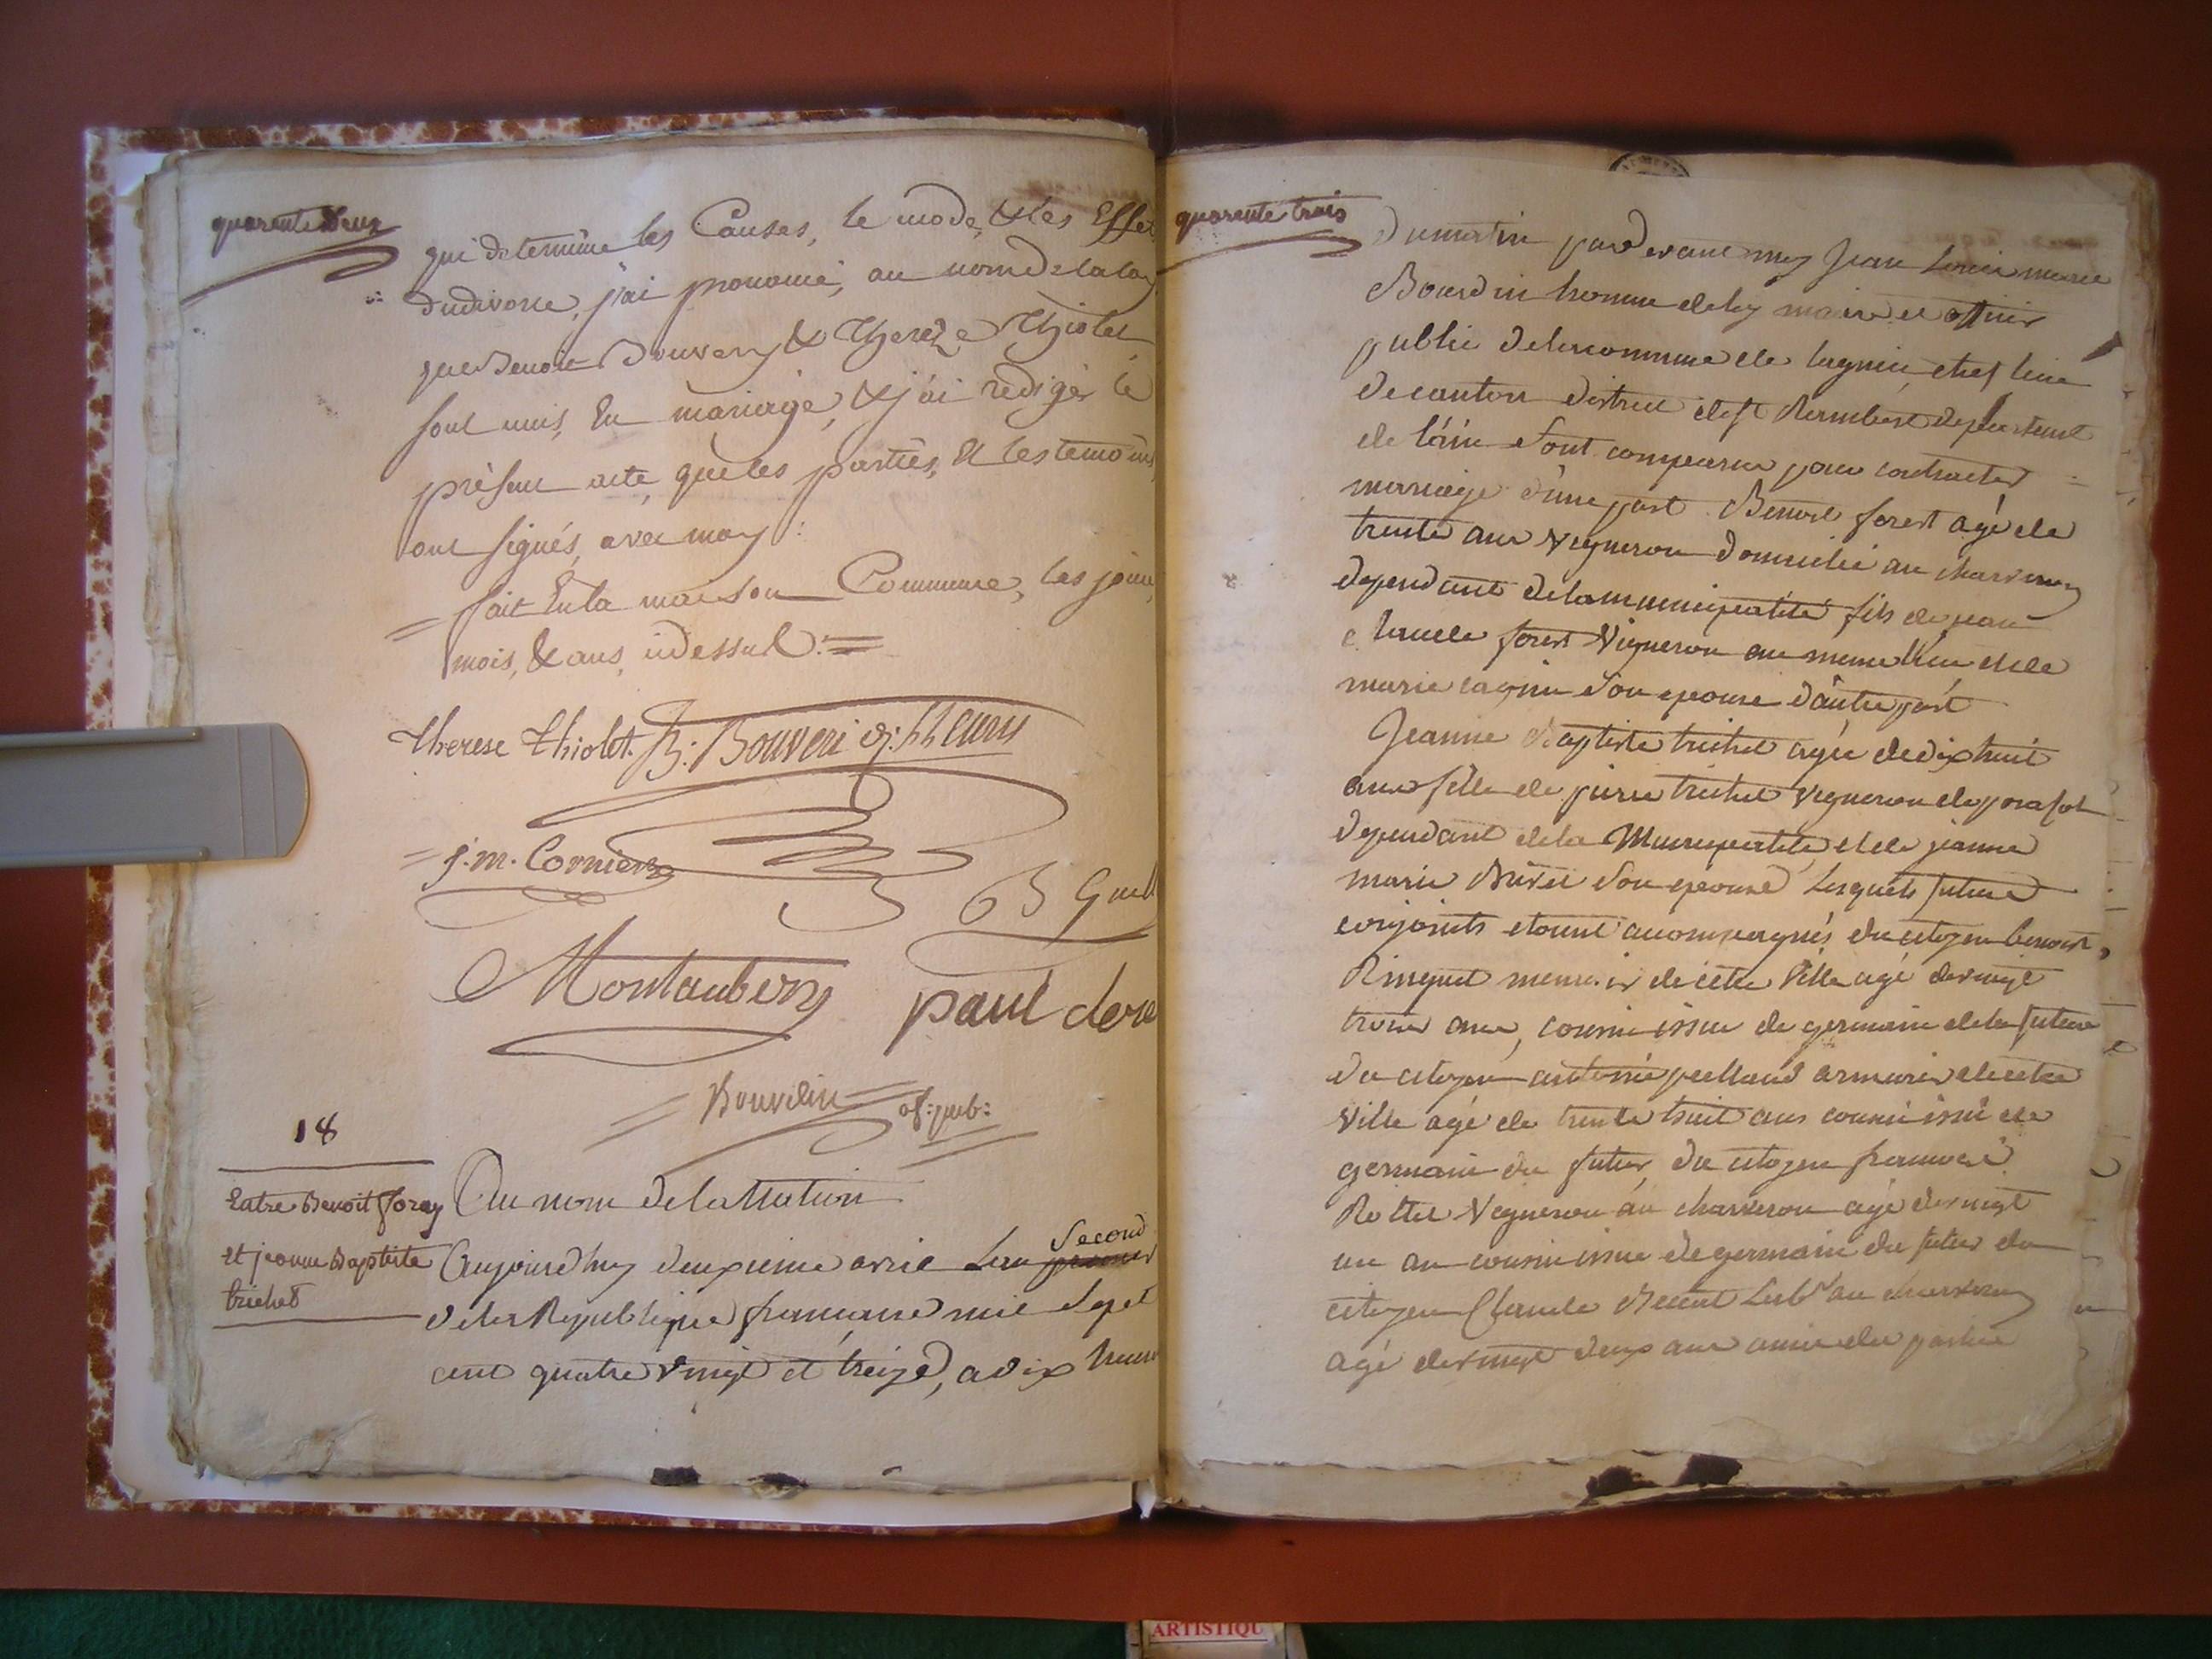 quarente Deux
qui determine les Causes, le mode, & les Effet
du divorse, j'ai prononcé, au nom de la loy
que Benoit Bouvery & Thereze Thiolet
sont unis, En mariage, & j'ai redigér le
présent acte, que les parties, & les temoins
ont signés, avec moy :
= fait En la maison Commune, les jour,
mois, & ans, cidessus. =
therese thiolet. B: Bouveri
= j. m. Cornier
Montaubery
paul dere
= Bourdin = of: pub:
18
Entre Benoit forey
et jeanne Baptiste
trichet
Au nom de la Nation
Aujourdhuy deuxieme avril Lan premier second
de la Republique francaise mil sept
cent quatre vingt et treize, a dix heure
quarente trois
du matin pardevant moy Jean Louis marie
Bourdin homme de loy maire et officier
public de la commune de lagnieu, chef lieu
de canton district de St Rambert departement
de l'ain sont comparus pour contracter
mariage d'une part Benoit forest agé de
trente ans vigneron domicilié au charveron
dependant de la municipalité fils de jean
claude forest vigneron au meme lieu et de
marie cagnin son epouse d'autre part
Jeanne Baptiste trichet agée de dix huit
ans fille de pierre trichet vigneron de
dependant de la Municipalité et de jeanne
marie son epouse Lesquels futurs
conjoints etant accompagnés du citoyen benoit
Ringuet de cette ville agé de vingt
trois ans, cousin issue de germain de la future
du citoyen antoine armurier de cette
ville agé de trente huit ans cousin issue de
germain du futur, du citoyen francois
vigneron au charveron agé de vingt
un an cousin issue de germain du futur du
citoyen Claude Labr au charveron
agé de vingt deux ans amie des parties
ARTISTIQU